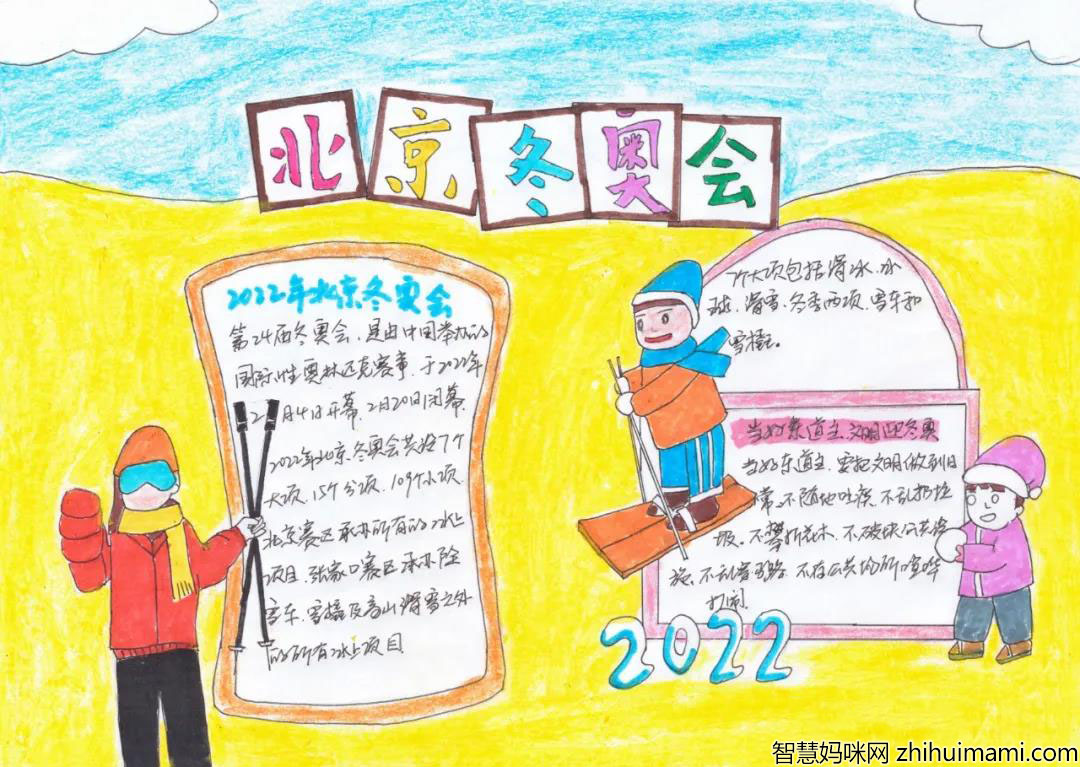 北京冬奥会
2022年北京冬奥会
第24届冬奥会,是由中国举办的
国际性奥林匹克赛事,于2022年
2月4日开幕,2月20日闭幕.
2022年北京冬奥会共设7个
大项,15个分项,109个小项.
北京赛区承办所有的冰上
项目,张家口赛区承办除
雪车、雪橇及高山滑雪之外
的所有冰上项目
7个大项包括滑冰、冰
球、滑雪、冬季两项、雪车和
雪橇。
当好东道主,文明迎冬奥
当好东道主,要把文明做到日
常、不随地吐痰、不乱扔垃
圾、不攀折花木、不破坏公共设
施、不乱穿马路、不在公共场所喧哗
打闹.
2022
智慧妈咪网 zhihuimami.com